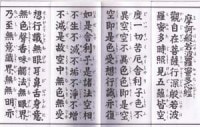 摩訶般若波羅蜜多心經
觀自在菩薩行深般若波
羅蜜多時照見五蘊皆空
度一切苦厄舍利子色不
異空空不異色色即是空
空即是色受想行識亦復
如是舍利子是諸法空相
不生不滅不垢不淨不增
不減是故空中無色無受
想行識無眼耳鼻舌身意
無色聲香味觸法無眼界
乃至無意識界無無明亦